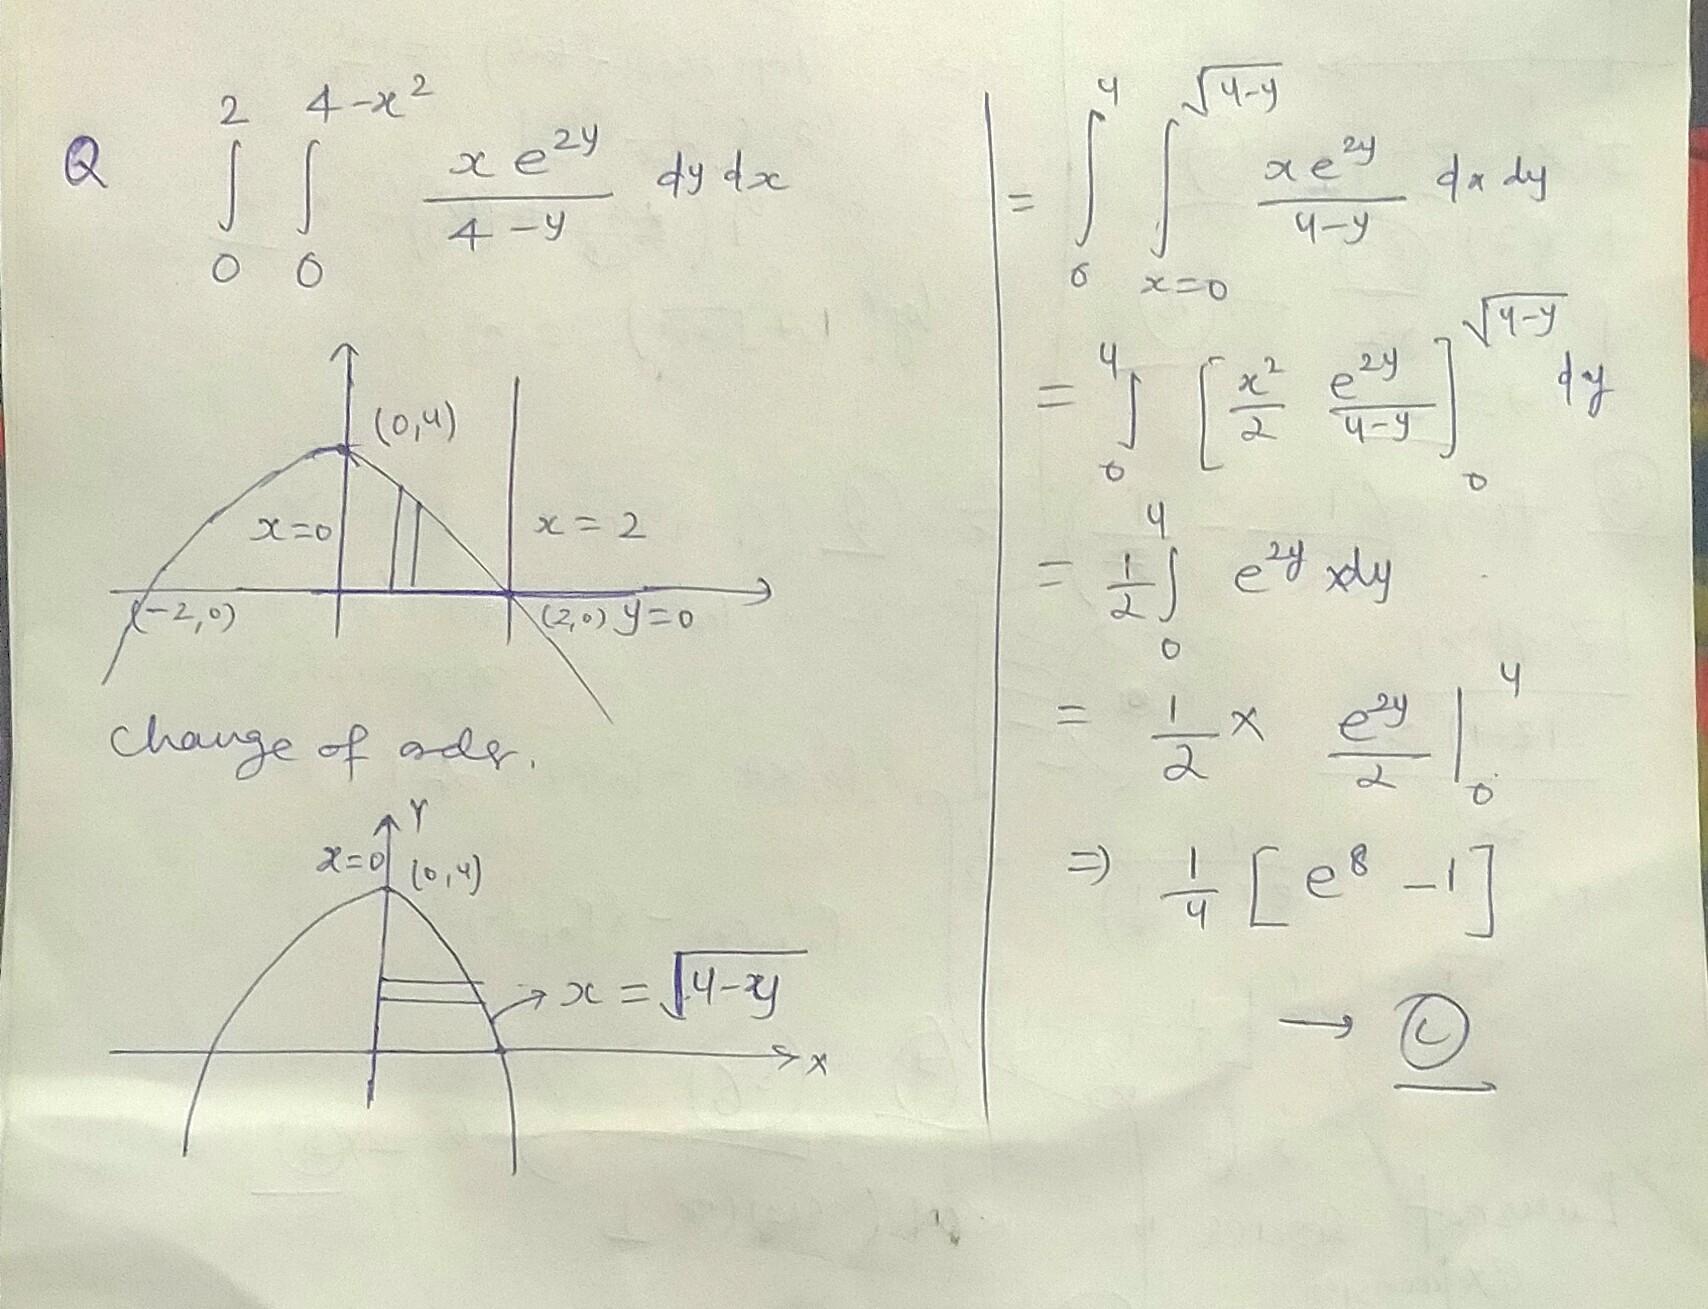 Q ∫₀² ∫₀^{4-x²} x e^{2y} / 4-y dy dx
(0,4)
x=0 x=2
(-2,0) (2,0) y=0
change of order.
Y
x=0 (0,4)
→ x = √4-y
x
= ∫₀⁴ ∫_{x=0}^{√4-y} x e^{2y} / 4-y dx dy
= ∫₀⁴ [ x²/2 e^{2y}/4-y ]₀^{√4-y} dy
= 1/2 ∫₀⁴ e^{2y} dy
= 1/2 × e^{2y}/2 |₀⁴
⇒ 1/4 [ e⁸ - 1 ]
→ Ⓒ